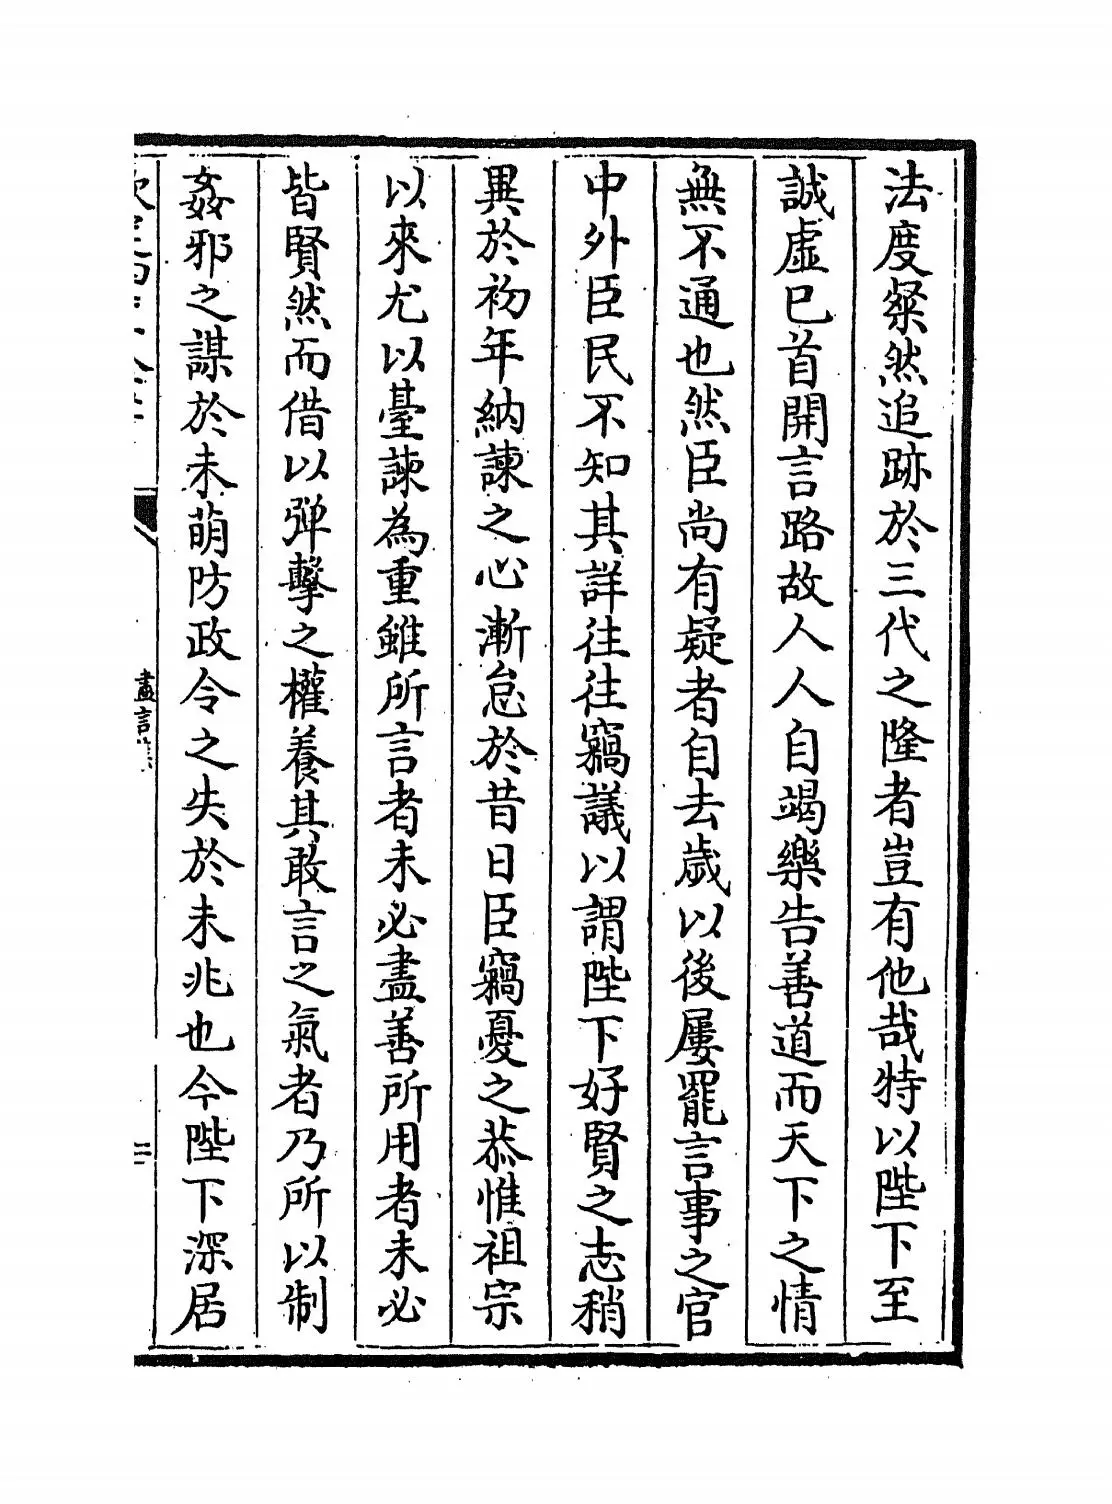 法度粲然追跡於三代之隆者豈有他哉特以陛下至
誠虛已首開言路故人人自竭樂告善道而天下之情
無不通也然臣尚有疑者自去歲以後屢罷言事之官
中外臣民不知其詳往往竊議以謂陛下好賢之志稍
異於初年納諫之心漸怠於昔日臣竊憂之恭惟祖宗
以來尤以臺諫為重雖所言者未必盡善所用者未必
皆賢然而借以彈擊之權養其敢言之氣者乃所以制
姦邪之謀於未萌防政令之失於未兆也今陛下深居
盡言集
二